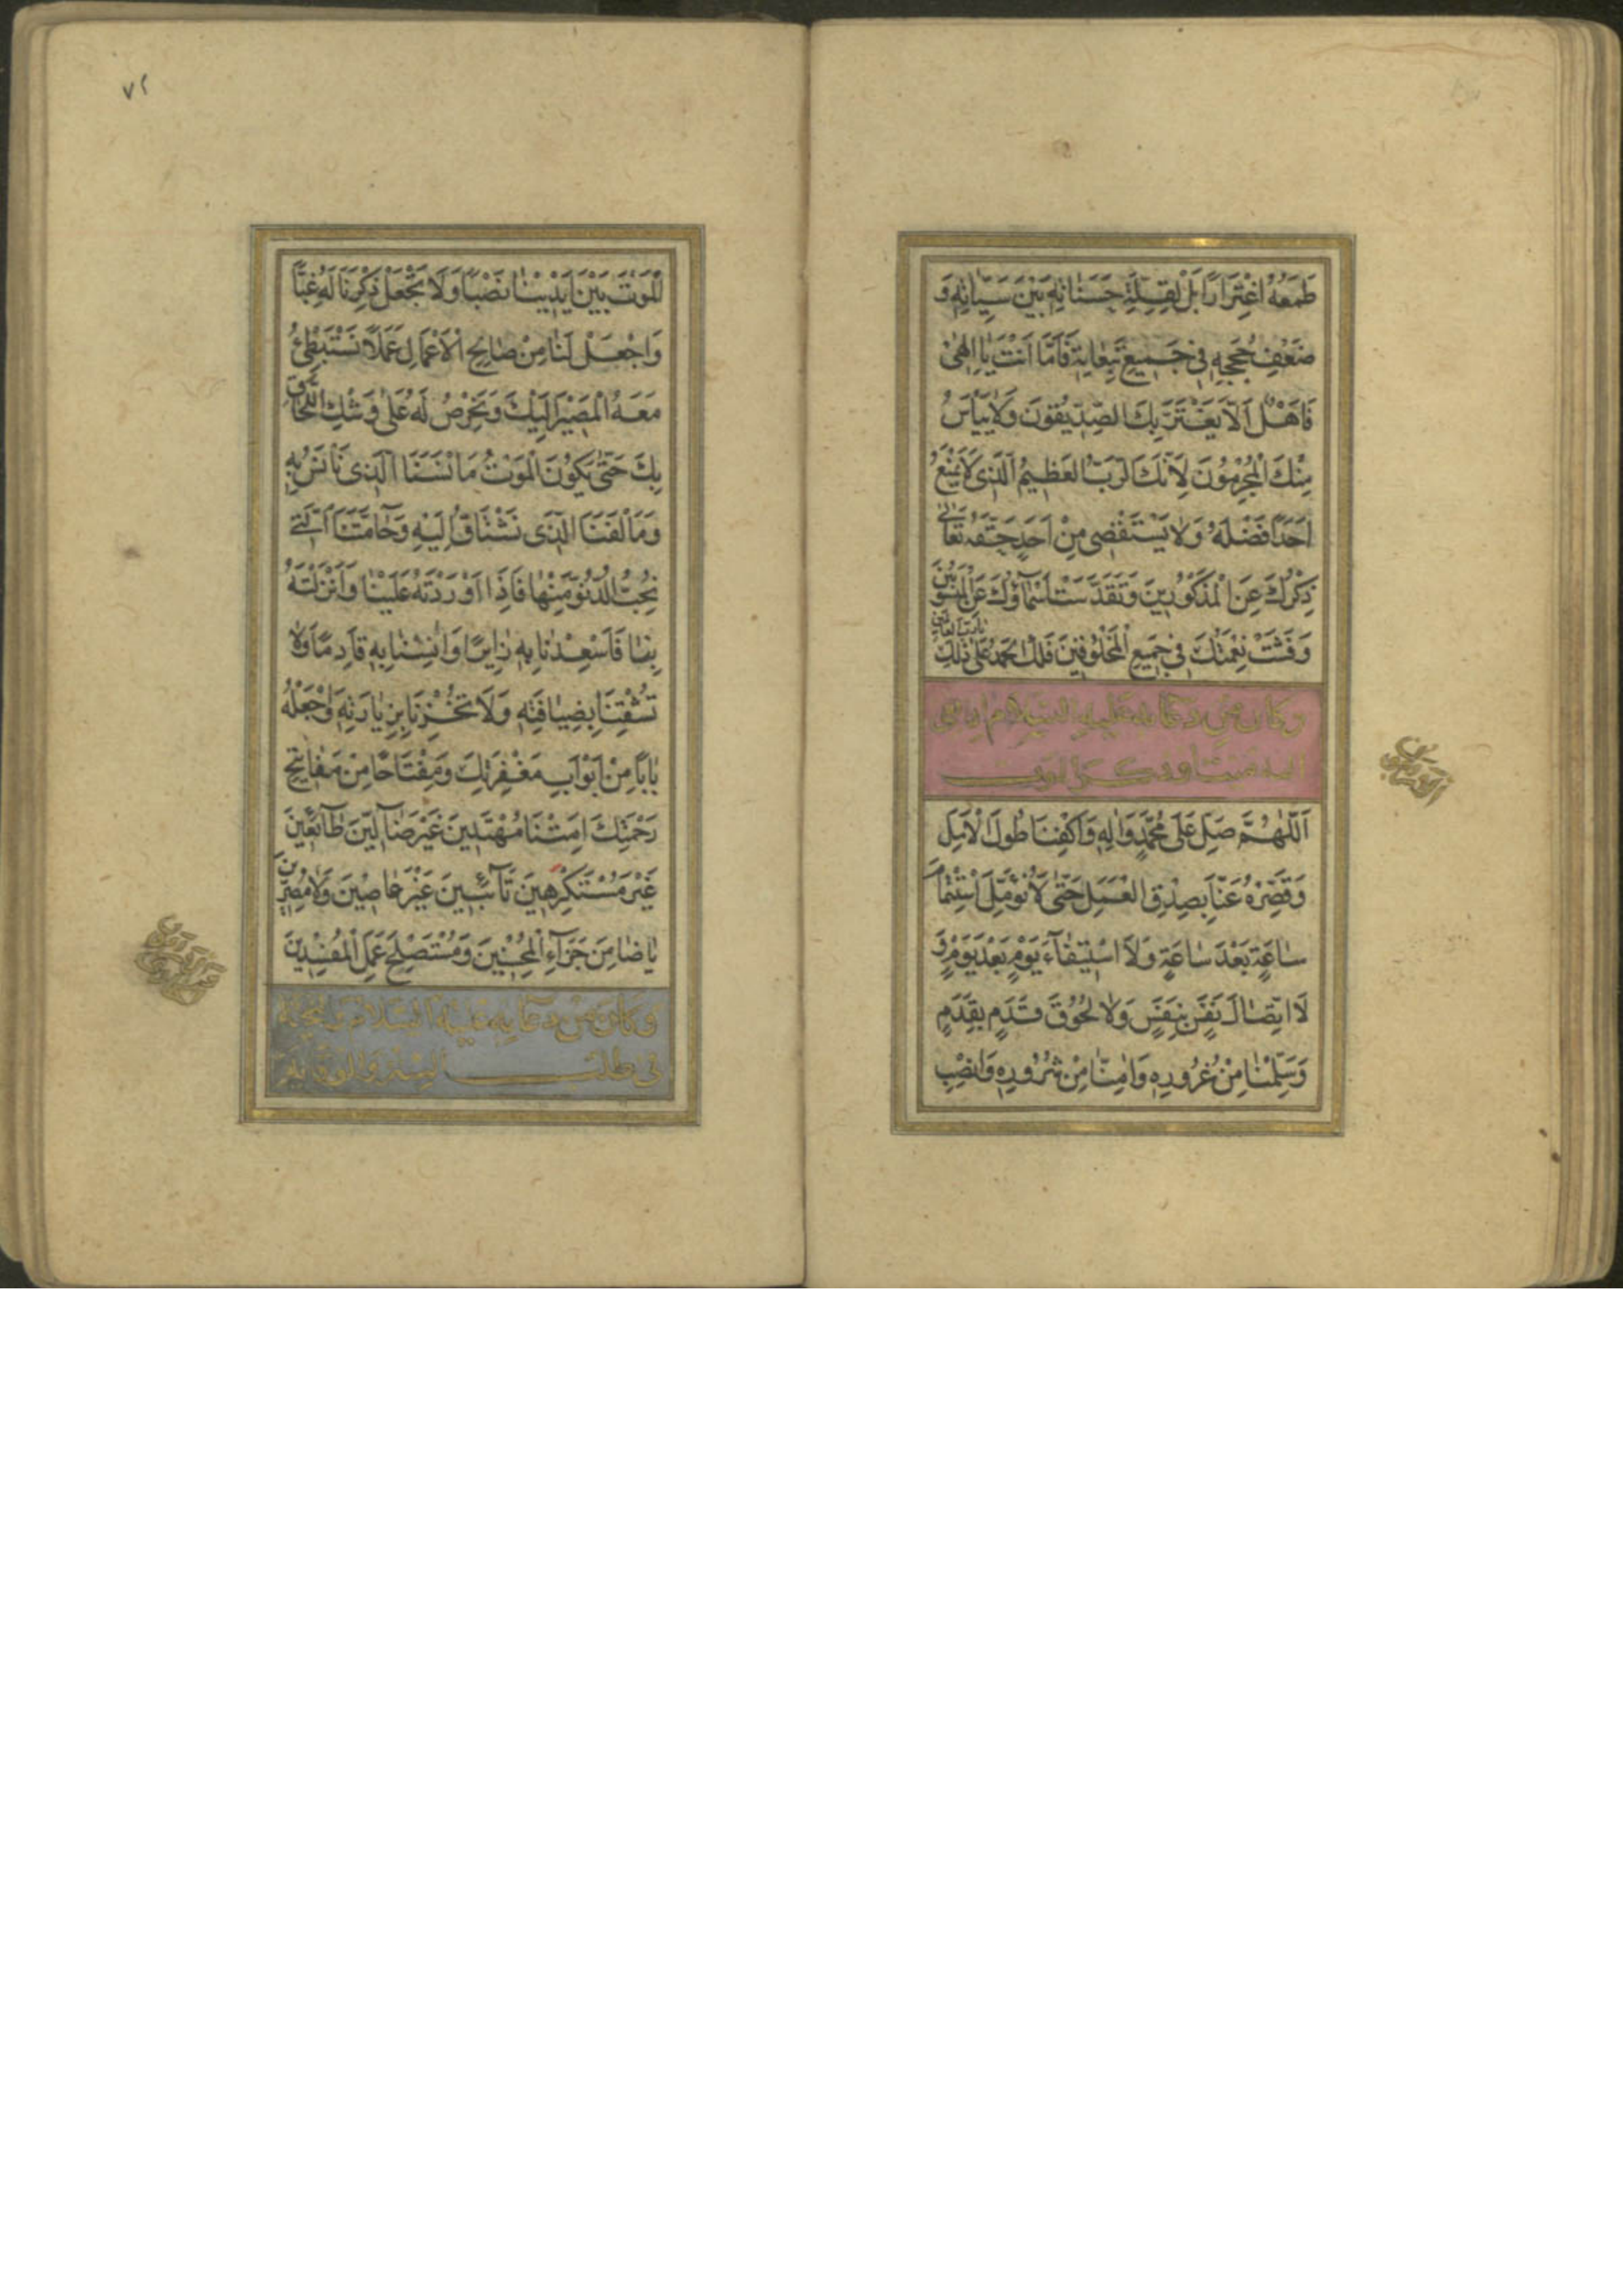 طَمَعُهُ اغْتِرَارًا بَلْ لِقِلَّةِ حَسَنَاتِهِ بَيْنَ سَيِّئَاتِهِ وَ
ضَعْفِ حُجَجِهِ فِي جَمِيعِ تَبِعَاتِهِ فَأَمَّا أَنْتَ يَا إِلٰهِي
فَأَهْلٌ أَلَّا يَغْتَرَّ بِكَ الصِّدِّيقُونَ وَلَا يَيْأَسَ
مِنْكَ الْمُجْرِمُونَ لِأَنَّكَ الرَّبُّ الْعَظِيمُ الَّذِي لَا يَمْنَعُ
أَحَدًا فَضْلَهُ وَلَا يَسْتَقْصِي مِنْ أَحَدٍ حَقَّهُ تَعَالَى
ذِكْرُكَ عَنِ الْمَذْكُورِينَ وَتَقَدَّسَتْ أَسْمَاؤُكَ عَنِ الْمَنْسُوبِينَ
وَفَشَتْ نِعْمَتُكَ فِي جَمِيعِ الْمَخْلُوقِينَ فَلَكَ الْحَمْدُ عَلَى ذٰلِكَ
يَا رَبَّ الْعَالَمِينَ
وَكَانَ مِنْ دُعَائِهِ عَلَيْهِ السَّلَامُ إِذَا نُعِيَ
إِلَيْهِ مَيِّتٌ أَوْ ذَكَرَ الْمَوْتَ
اَللّٰهُمَّ صَلِّ عَلَى مُحَمَّدٍ وَآلِهِ وَاكْفِنَا طُولَ الْأَمَلِ
وَقَصِّرْهُ عَنَّا بِصِدْقِ الْعَمَلِ حَتَّى لَا نُؤَمِّلَ اسْتِتْمَامَ
سَاعَةٍ بَعْدَ سَاعَةٍ وَلَا اسْتِيفَاءَ يَوْمٍ بَعْدَ يَوْمٍ وَ
لَا اتِّصَالَ نَفَسٍ بِنَفَسٍ وَلَا لُحُوقَ قَدَمٍ بِقَدَمٍ
وَسَلِّمْنَا مِنْ غُرُورِهِ وَآمِنَّا مِنْ شُرُورِهِ وَانْصِبِ
٧٢
الْمَوْتَ بَيْنَ أَيْدِينَا نَصْبًا وَلَا تَجْعَلْ ذِكْرَنَا لَهُ غِبًّا
وَاجْعَلْ لَنَا مِنْ صَالِحِ الْأَعْمَالِ عَمَلًا نَسْتَبْطِئُ
مَعَهُ الْمَصِيرَ إِلَيْكَ وَنَحْرِصُ لَهُ عَلَى وَشْكِ اللَّحَاقِ
بِكَ حَتَّى يَكُونَ الْمَوْتُ مَأْنَسَنَا الَّذِي نَأْنَسُ بِهِ
وَمَأْلَفَنَا الَّذِي نَشْتَاقُ إِلَيْهِ وَحَامَّتَنَا الَّتِي
نُحِبُّ الدُّنُوَّ مِنْهَا فَإِذَا أَوْرَدْتَهُ عَلَيْنَا وَأَنْزَلْتَهُ
بِنَا فَأَسْعِدْنَا بِهِ زَائِرًا وَآنِسْنَا بِهِ قَادِمًا وَلَا
تُشْقِنَا بِضِيَافَتِهِ وَلَا تُخْزِنَا بِزِيَارَتِهِ وَاجْعَلْهُ
بَابًا مِنْ أَبْوَابِ مَغْفِرَتِكَ وَمِفْتَاحًا مِنْ مَفَاتِيحِ
رَحْمَتِكَ أَمِتْنَا مُهْتَدِينَ غَيْرَ ضَالِّينَ طَائِعِينَ
غَيْرَ مُسْتَكْرِهِينَ تَائِبِينَ غَيْرَ عَاصِينَ وَلَا مُصِرِّينَ
يَا ضَامِنَ جَزَاءِ الْمُحْسِنِينَ وَمُسْتَصْلِحَ عَمَلِ الْمُفْسِدِينَ
وَكَانَ مِنْ دُعَائِهِ عَلَيْهِ السَّلَامُ وَالتَّحِيَّةُ
فِي طَلَبِ السِّتْرِ وَالْوِقَايَةِ